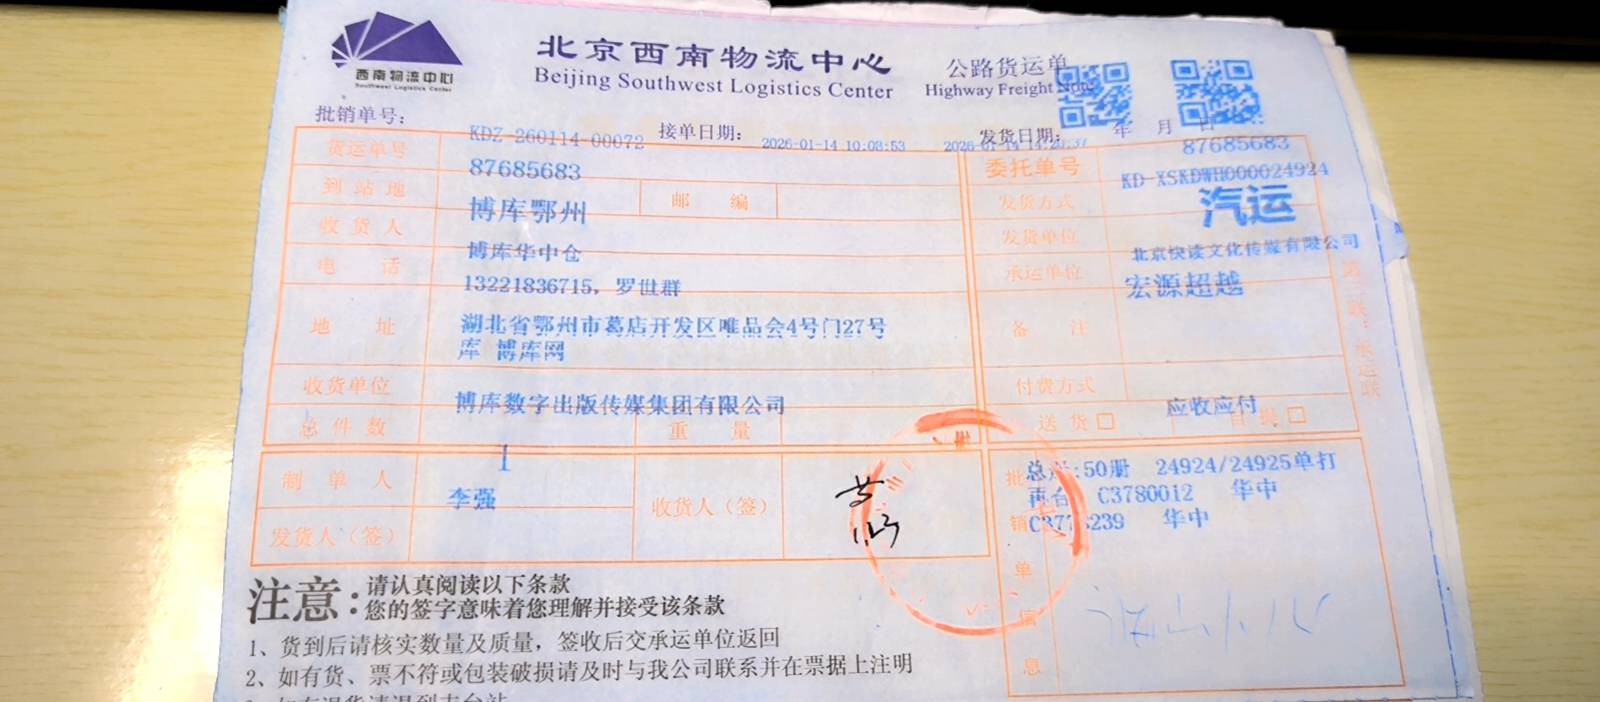 西南物流中心
Southwest Logistics Center
北京西南物流中心
Beijing Southwest Logistics Center
公路货运单
Highway Freight Note
批销单号:
KDZ-260114-00072
接单日期:
2026-01-14 10:08:53
发货日期: 年 月 日
货运单号
87685683
委托单号
87685683
KD-XSKDWH000024924
到站地
博库鄂州
邮 编
发货方式
汽运
收货人
博库华中仓
发货单位
北京快读文化传媒有限公司
电 话
13221836715, 罗世群
承运单位
宏源超越
地 址
湖北省鄂州市葛店开发区唯品会4号门27号
库 博库网
备 注
收货单位
博库数字出版传媒集团有限公司
付费方式
应收应付
总件数
1
重 量
送货□ 自提□
制单人
李强
收货人(签)
发货人(签)
批销单信息
:50册 24924/24925单打
C3780012 华中
华中
注意:
请认真阅读以下条款
您的签字意味着您理解并接受该条款
1、货到后请核实数量及质量，签收后交承运单位返回
2、如有货、票不符或包装破损请及时与我公司联系并在票据上注明